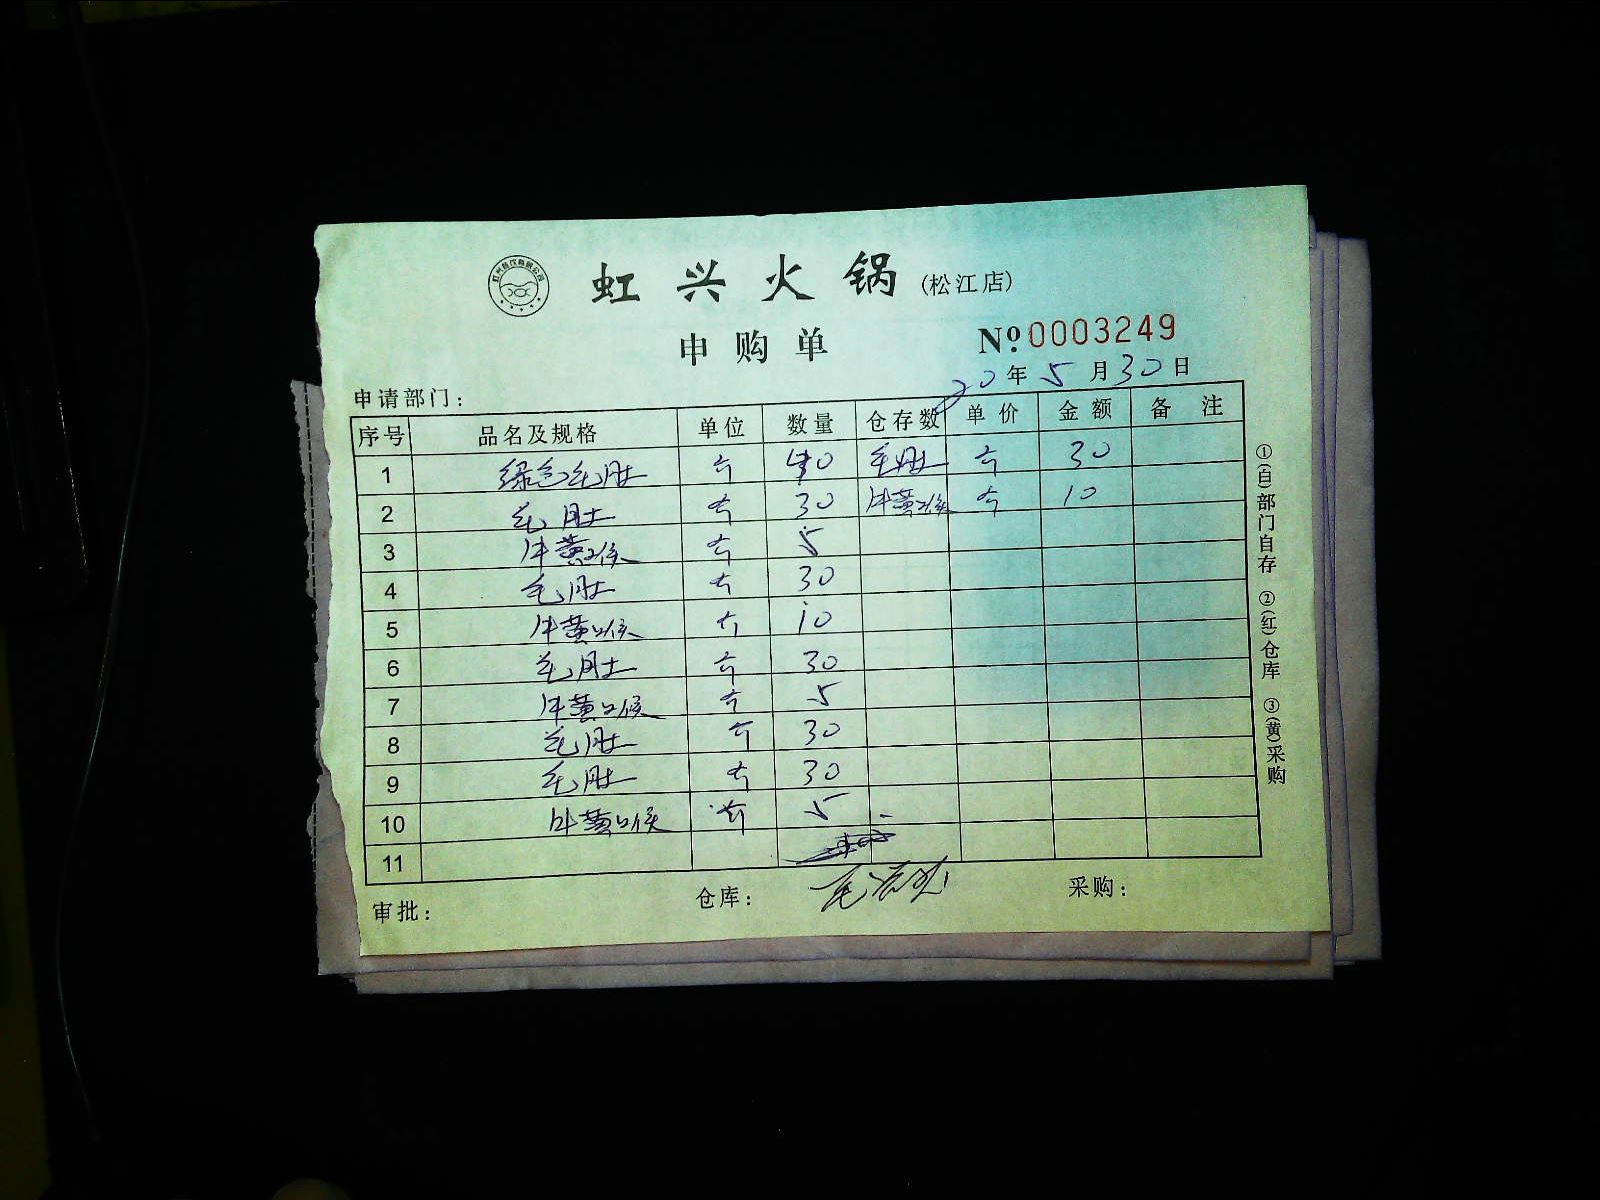 虹兴火锅(松江店)
申购单
№0003249
20年5月30日
申请部门：
序号 品名及规格 单位 数量 仓存数 单价 金额 备注
1 绿色毛肚 斤 40 毛肚 斤 30
2 毛肚 斤 30 牛黄喉 斤 10
3 牛黄喉 斤 5
4 毛肚 斤 30
5 牛黄喉 斤 10
6 毛肚 斤 30
7 牛黄喉 斤 5
8 毛肚 斤 30
9 毛肚 斤 30
10 牛黄喉 斤 5
11
审批： 仓库： 采购：
①(白)部门自存 ②(红)仓库 ③(黄)采购